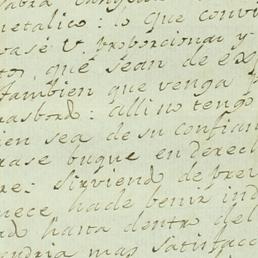 metalico: lo que convi
vase V. proporcionar y
to, que sean de exp
tambien que venga
rasbord: alli no tengo
ien sea de su confian
rase buque en derech
re: sirviend de brev
nece hade benir ind
ad hasta dentro del
endria mas satisfacc